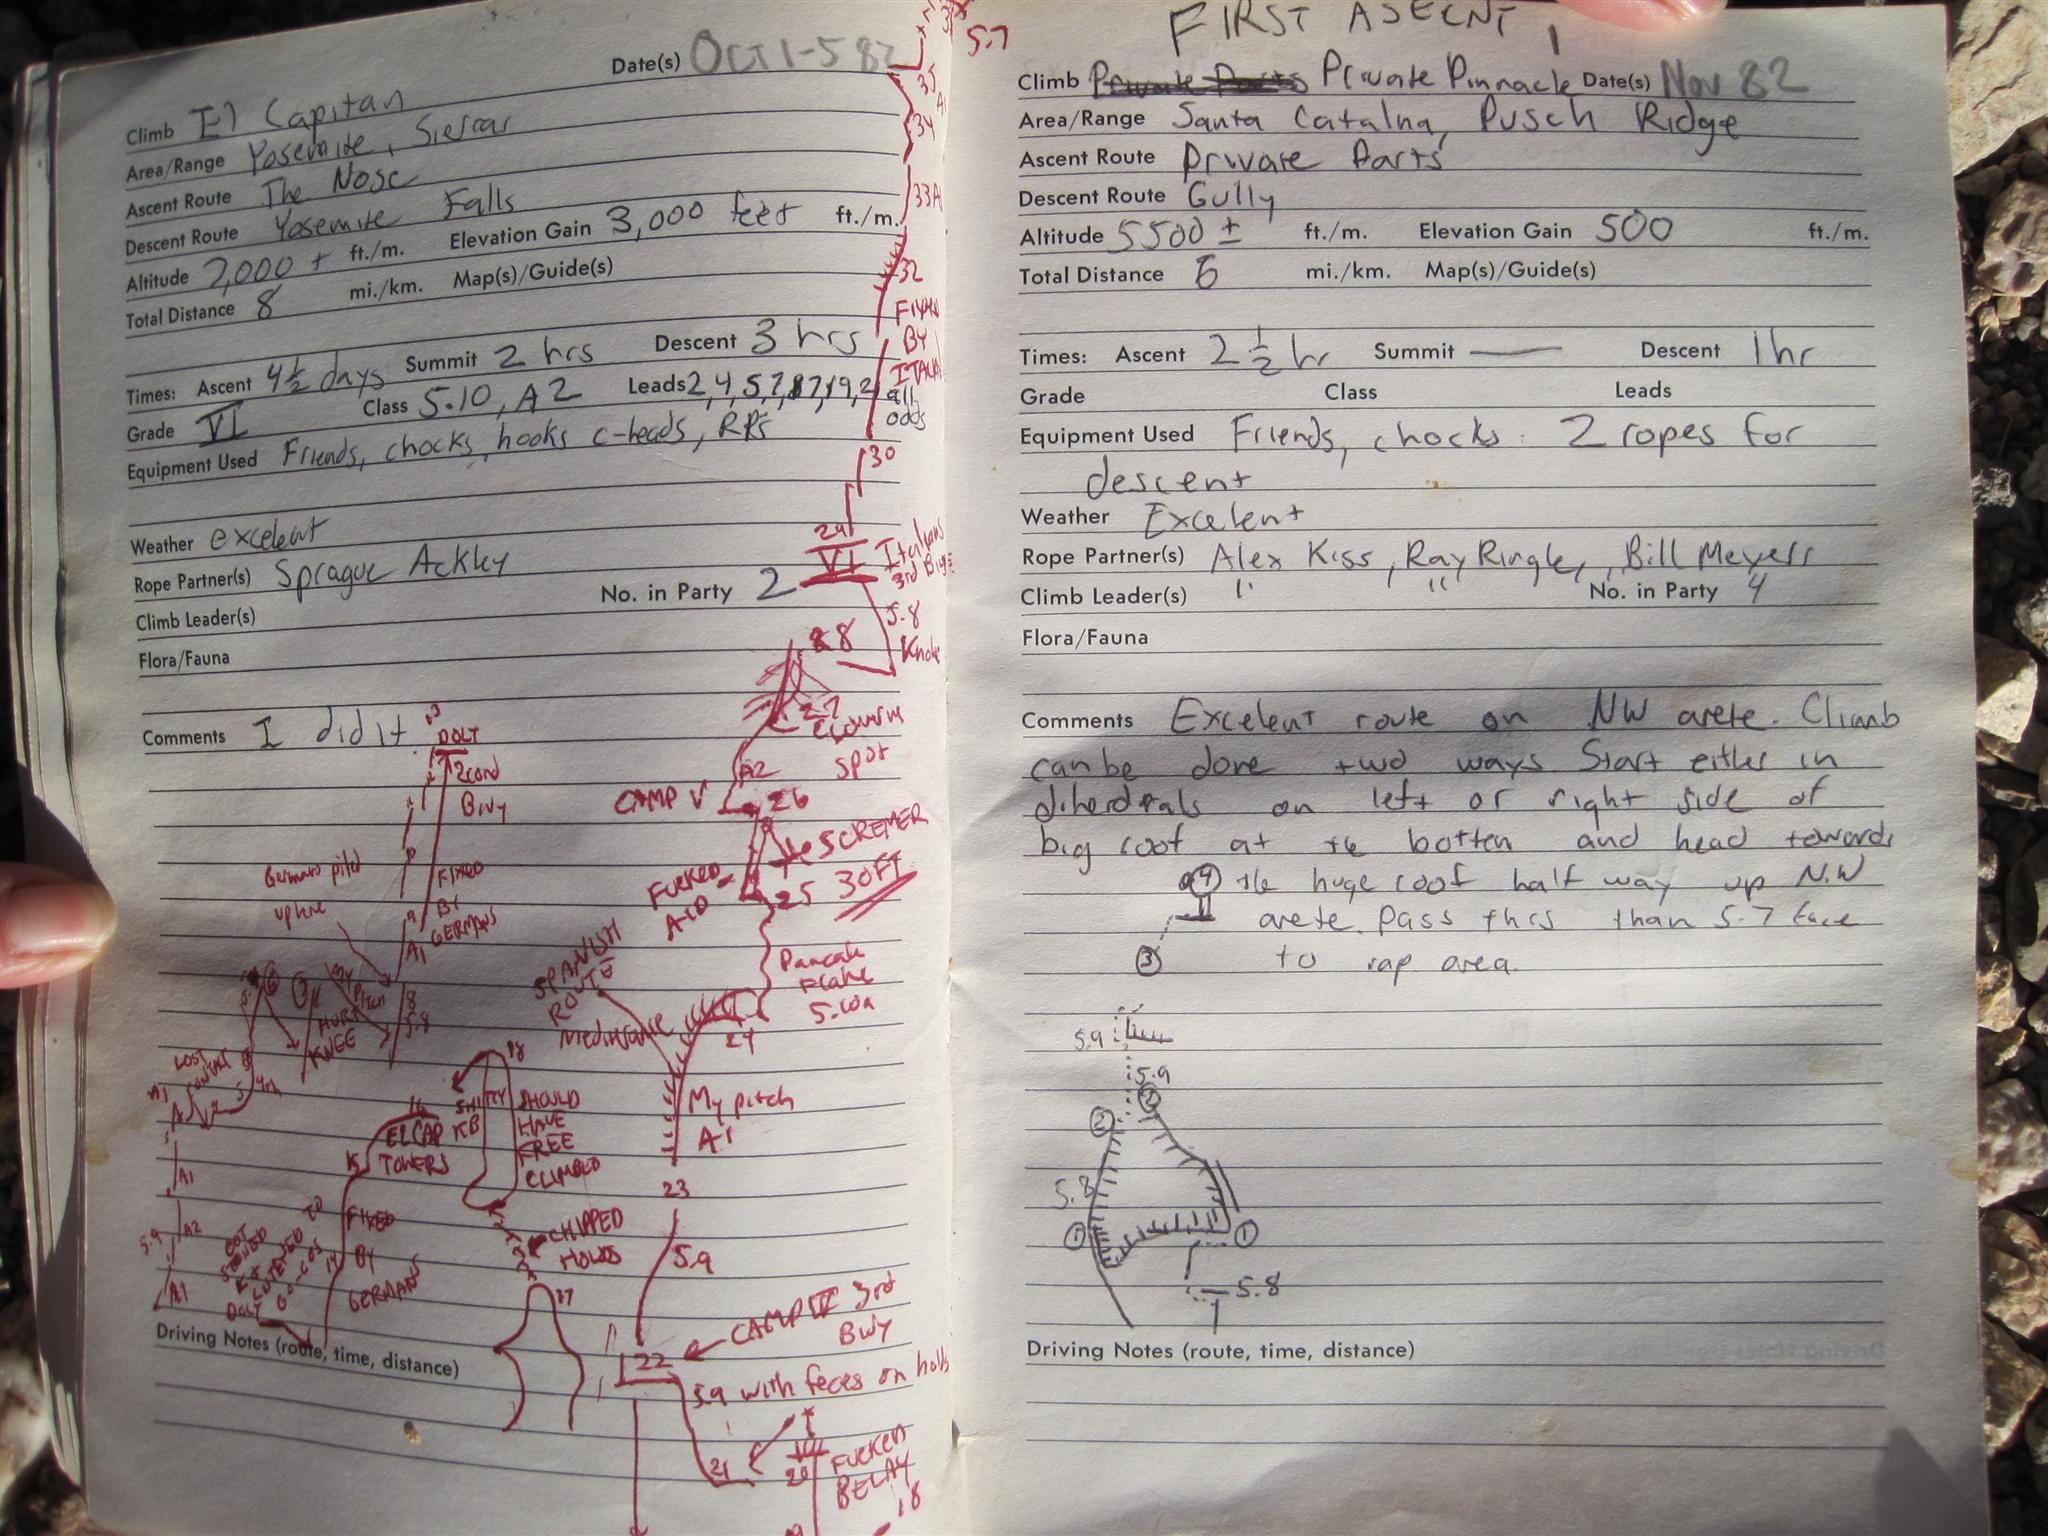 Date(s) OCT 1-5 82
Climb El Capitan
Area/Range Yosemite, Sierras
Ascent Route The Nose
Descent Route Yosemite Falls
Altitude 7,000 + ft./m. Elevation Gain 3,000 feet ft./m.
Total Distance 8 mi./km. Map(s)/Guide(s)
Times: Ascent 4 1/2 days Summit 2 hrs Descent 3 hrs
Grade VI Class 5.10, A2 Leads 2, 4, 5, 7, 17, 19, 21 all odds
Equipment Used Friends, chocks, hooks c-heads, RPs
Weather excelent
Rope Partner(s) Sprague Ackley
Climb Leader(s) No. in Party 2
Flora/Fauna
Comments I did it.
35
34
33 A1
32
FIXED
BY
30
29
VI Italians
3rd Bivy
5.8
28
27
spot
A2
CAMP V 26
SCREMER
30 FT
25
FUCKED
AID
Pancake
Flake
5.10a
SPANISH
ROUTE
24
My pitch
A1
23
5.9
CAMP IV 3rd
Bivy
22
5.9 with feces on holds
21
20
FUCKEN
BELAY
18
DOLT
2cond
Bivy
FIXED
BY
GERMANS
9
A1
Germans pitch
8
5.8
My
Pitch
HURT
KNEE
LOST
A1
A1
A2
5.9
A1
18
SHITTY
KB
SHOULD
HAVE
FREE
CLIMBED
16
EL CAP
TOWERS
15
FIXED
BY
GERMANS
14
CHIPPED
HOLDS
17
Driving Notes (route, time, distance)
FIRST ASECNT
5.7
Climb Private Parts Private Pinnacle Date(s) Nov 82
Area/Range Santa Catalna, Pusch Ridge
Ascent Route Private Parts
Descent Route Gully
Altitude 5500 ± ft./m. Elevation Gain 500 ft./m.
Total Distance 6 mi./km. Map(s)/Guide(s)
Times: Ascent 2 1/2 hr Summit — Descent 1 hr
Grade Class Leads
Equipment Used Friends, chocks. 2 ropes for
descent
Weather Excelent
Rope Partner(s) Alex Kiss, Ray Ringle, Bill Meyers
Climb Leader(s) " " No. in Party 4
Flora/Fauna
Comments Excelent route on NW arete. Climb
can be done two ways. Start either in
diherdrals on left or right side of
big roof at te botten and head towards
④ the huge roof half way up N.W
arete. pass this than 5.7 face
③ to rap area.
5.9
5.9
② ②
5.8
① ①
5.8
Driving Notes (route, time, distance)